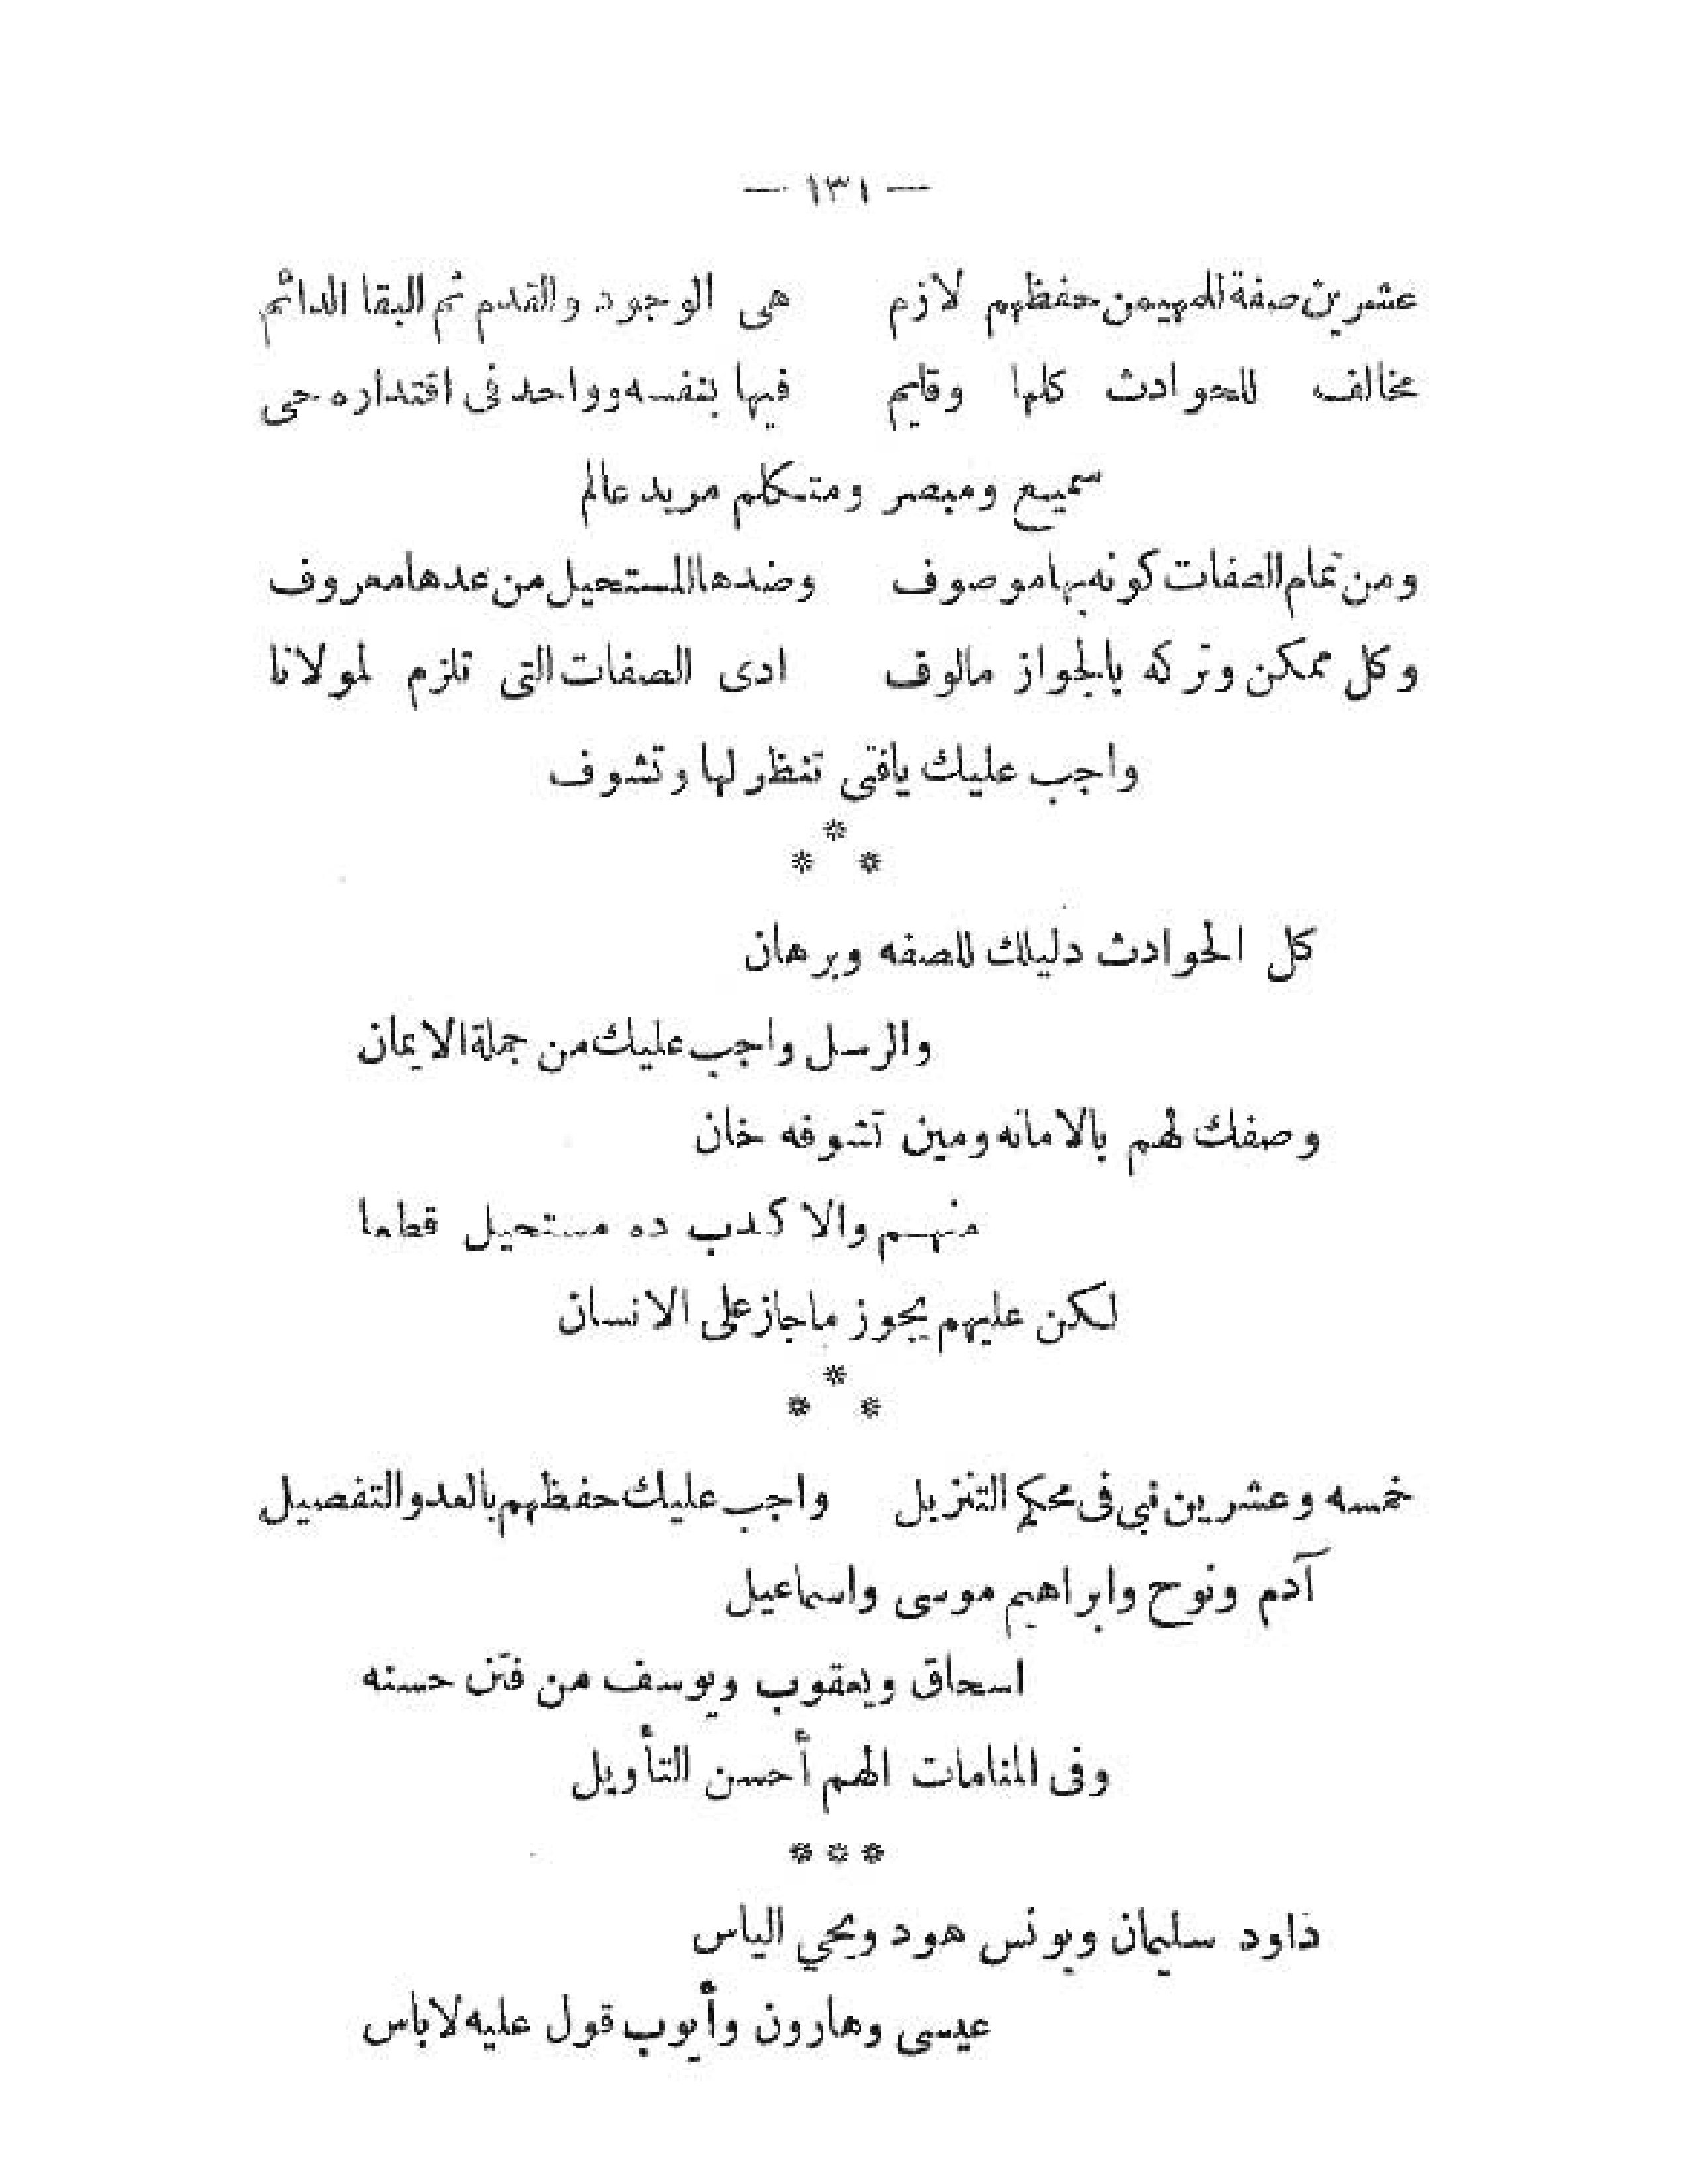 — ١٣١ —
عشرين صفة للمهيمن حفظهم لازم هى الوجود والقدم ثم البقا الدائم
مخالف للحوادث كلها وقايم فيها بنفسه وواحد فى اقتداره حى
سميع ومبصر ومتكلم مريد عالم
ومن تمام الصفات كونه بها موصوف وضدها المستحيل من عدها معروف
وكل ممكن وتركه بالجواز مالوف ادى الصفات التى تلزم لمولانا
واجب عليك يافتى تنظر لها وتشوف
* * *
كل الحوادث دليلك للصفه وبرهان
والرسل واجب عليك من جملة الايمان
وصفك لهم بالامانه ومين تشوفه خان
منهم والا كدب ده مستحيل قطعا
لكن عليهم يجوز ماجاز على الانسان
* * *
خمسه وعشرين نبى فى محكم التنزيل واجب عليك حفظهم بالعد والتفصيل
آدم ونوح وابراهيم موسى واسماعيل
اسحاق ويعقوب ويوسف من فتن حسنه
وفى المنامات الهم أحسن التأويل
* * *
داود سليمان ويونس هود ويحي الياس
عيسى وهارون وأيوب قول عليه لاباس